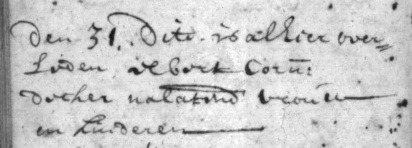 Den 31. Dito is alhier over=
leden, Albert Corn:
docher nalatend vrouw
en kinderen